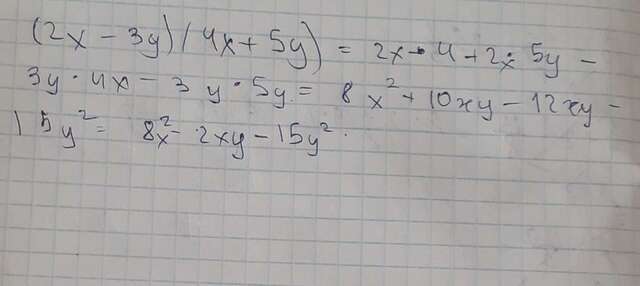 (2x - 3y)(4x + 5y) = 2x · 4 + 2x · 5y -
3y · 4x - 3y · 5y = 8x² + 10xy - 12xy -
15y² = 8x² - 2xy - 15y².